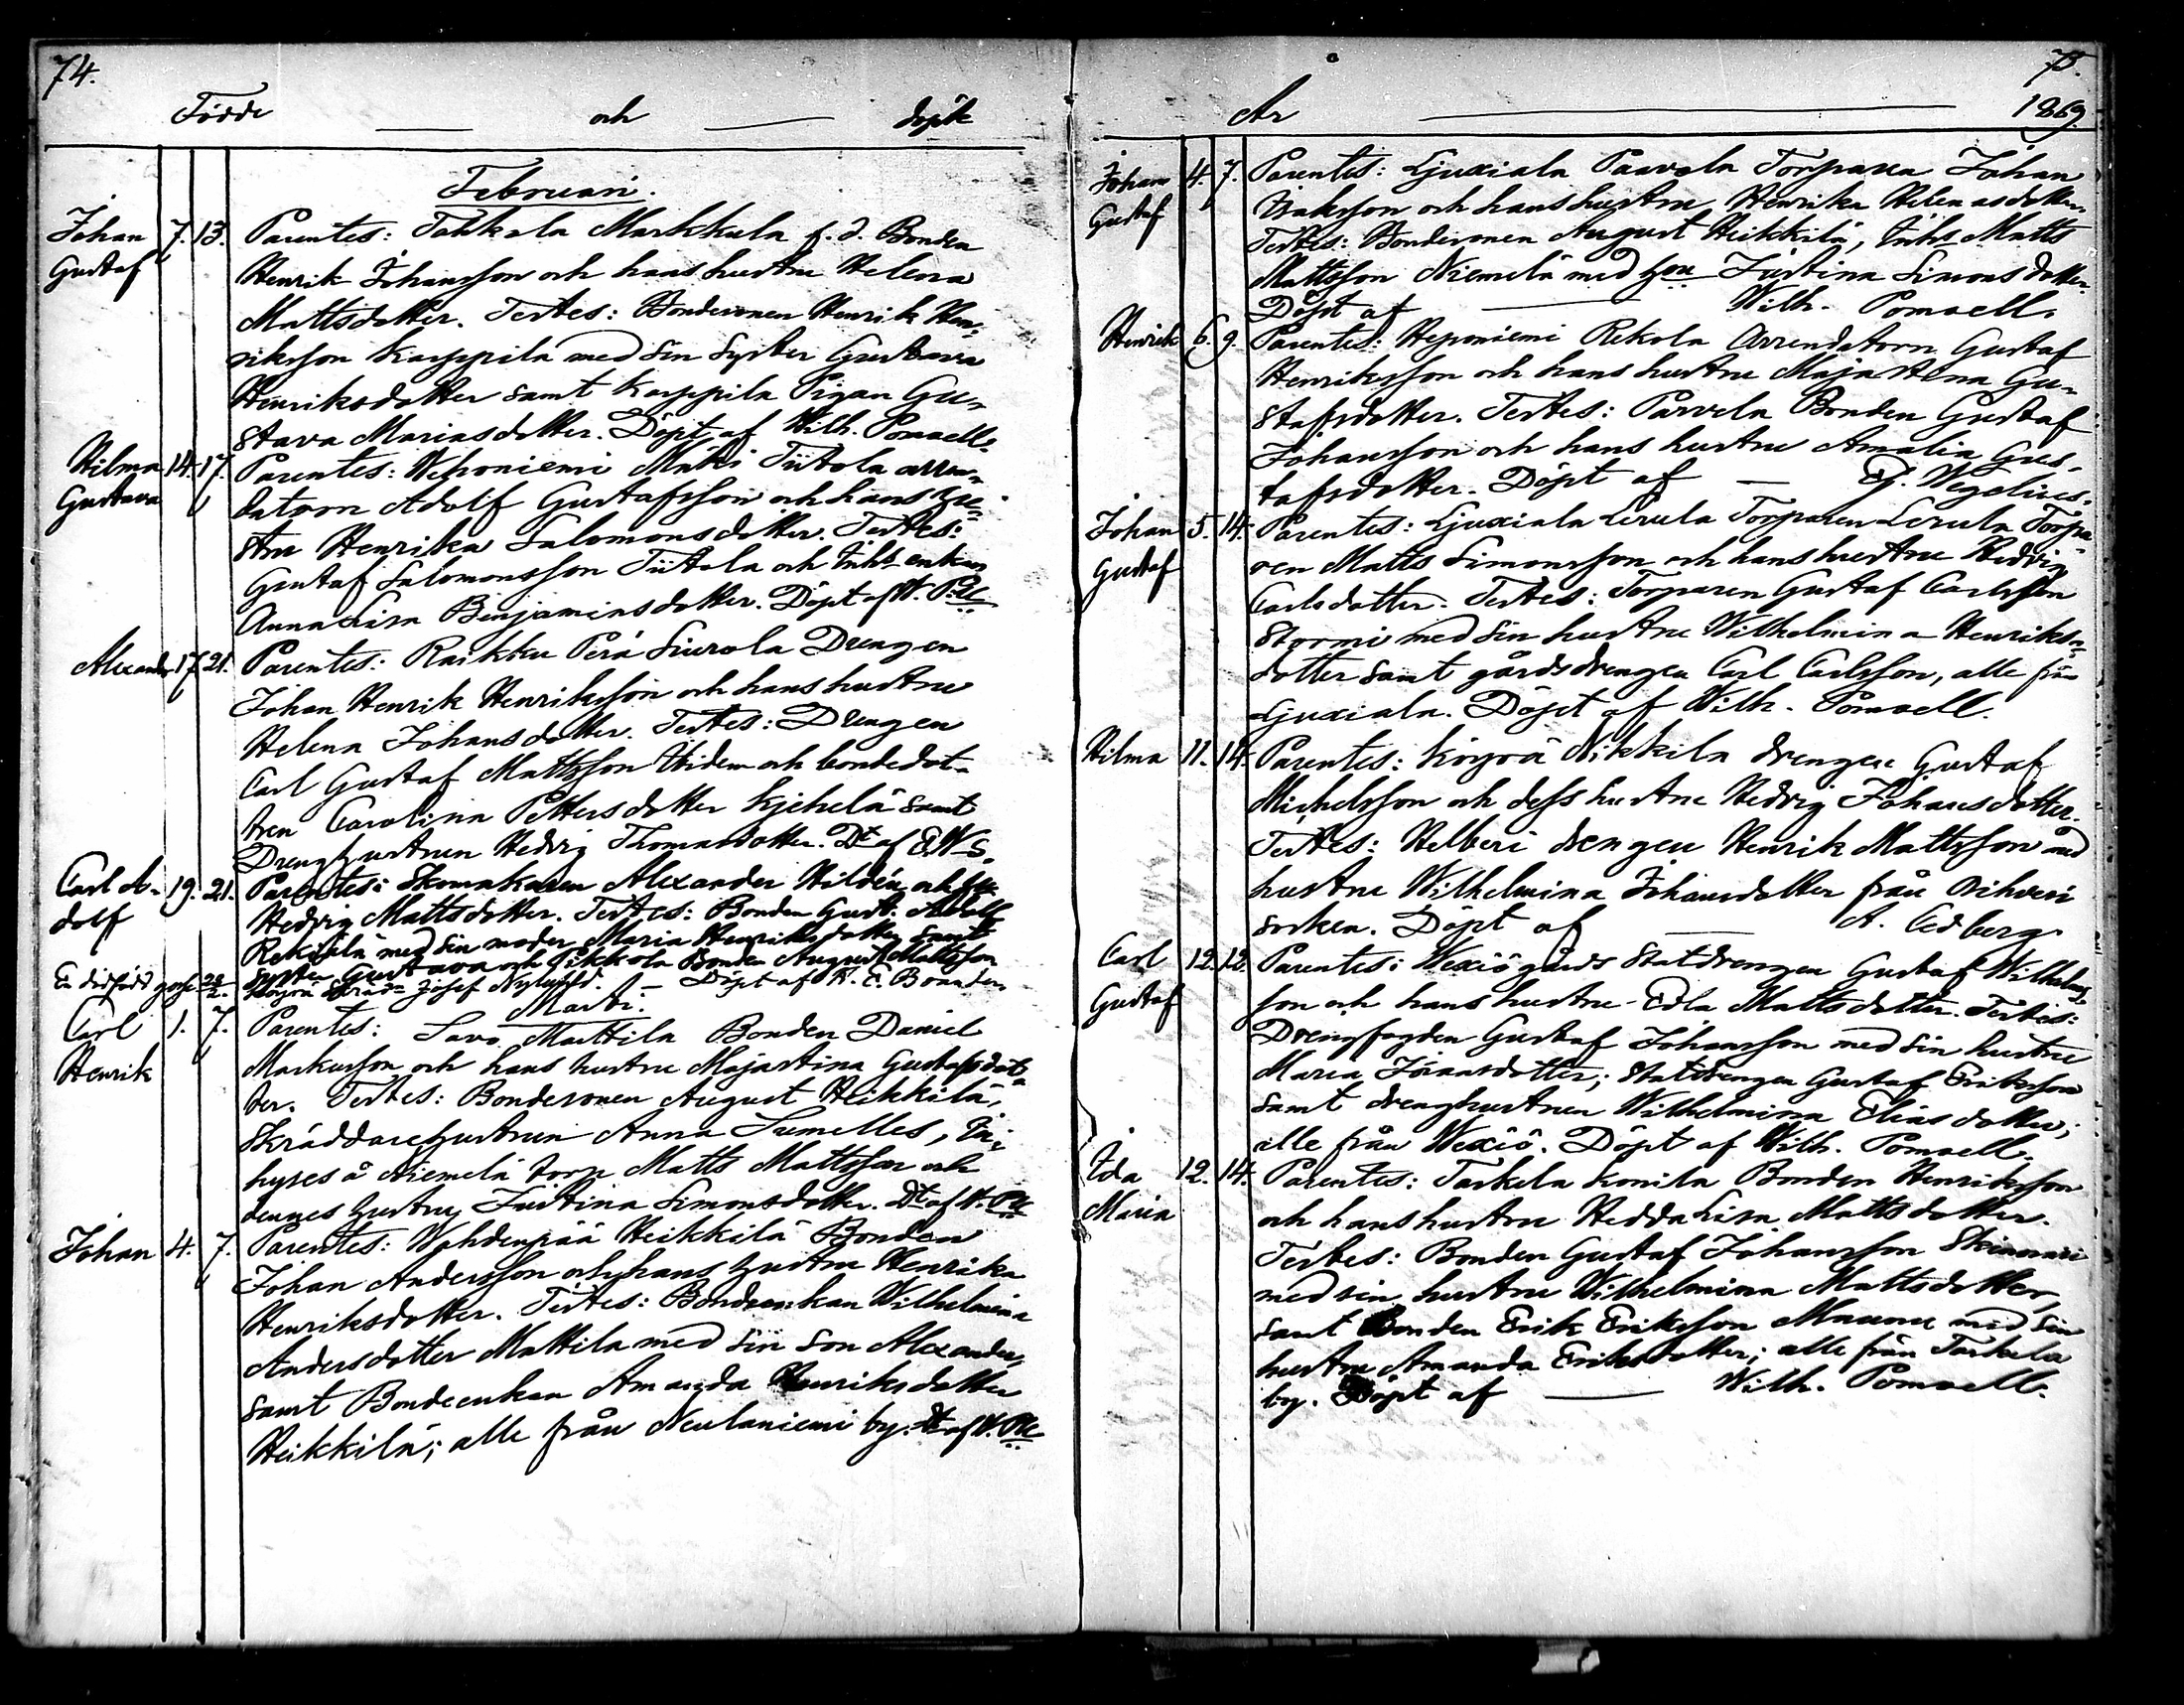 74.
Födde och döpte
Februari.
Johan 7. 13. Parentes: Tahkala Markkula f. d. Bonden
Gustaf Henrik Johansson och hans hustru Helena
Mattsdotter. Testes: Bondesonen Henrik Hen-
riksson Karppila med sin syster Gustava
Henriksdotter samt Karppila Pigan Gu-
stava Mariasdotter. Döpt af Wilh. Pomoell.
Hilma 14. 17. Parentes: Wehoniemi Mäki Tiitola arren-
Gustava datorn Adolf Gustafsson och hans hu-
stru Henrika Salomonsdotter. Testes:
Gustaf Salomonsson Tiitola och Inhs enkan
Anna Lisa Benjaminsdotter. Döpt af W. P:ll
Alexander 17. 21. Parentes: Raikku Perä Siurola Drengen
Johan Henrik Henriksson och hans hustru
Helena Johansdotter. Testes: Drengen
Carl Gustaf Mattsson Ibidem och bondedot-
tren Carolina Pettersdotter Kjehelä samt
Drenghustrun Hedvig Thomasdotter. Dt af E. W-s.
Carl A- 19. 21. Parentes: Skomakaren Alexander Hildén och hu
dolf Hedvig Mattsdotter. Testes: Bonden Gust. Adolf
Rekkilä med sin moder Maria Henriksdotter samt
syster Gustava och Pikkola Bonden August Mattsson
Döpt af K. E. Bonsden
En dödfödd gosse 28/2. Köyrä Skrädn Josef Nylund.
Marti.
Carl 1. 7. Parentes: Savo Mattila Bonden Daniel
Henrik Markusson och hans hustru Majastina Gustafsdot-
ter. Testes: Bondesonen August Heikkilä,
Skräddarehustrun Anna Sumelles, In-
hyses å Niemelä torp Matts Mattsson och
dennes hustru Justina Simonsdotter. Dt af W. P:ll
Johan 4. 7. Parentes: Wahdenpää Heikkilä Bonden
Johan Andersson och hans hustru Henrika
Henriksdotter. Testes: Bondeenkan Wilhelmina
Andersdotter Mattila med sin son Alexander
samt Bondeenkan Amanda Henriksdotter
Heikkilä; alle från Neulaniemi by. Dt af W. P:ll
75.
År 1869.
Johan 4. 7. Parentes: Ljuxiala Paavola Torparen Johan
Gustaf Isaksson och hans hustru Henrika Helenasdotter.
Testes: Bondesonen August Heikkilä, Inhs Matts
Mattsson Niemelä med hou Justina Simonsdotter.
Döpt af Wilh. Pomoell.
Henrik 6. 9. Parentes: Heponiemi Rekola Arrendatorn Gustaf
Henriksson och hans hustru Maja Stina Gu-
stafsdotter. Testes: Parvela Bonden Gustaf
Johansson och hans hustru Amalia Gus-
tafsdotter. Döpt af Ej. Wegelius.
Johan 5. 14. Parentes: Ljuxiala Lerula Torparen Lerula Torpa-
Gustaf ren Matts Simonsson och hans hustru Hedvig
Carlsdotter. Testes: Torparen Gustaf Carlsson
Stormi med sin hustru Wilhelmina Henriks-
dotter samt gårdsdrengen Carl Carlsson, alle från
Ljuxiala. Döpt af Wilh. Pomoell.
Hilma 11. 14. Parentes: Köyrä Nikkilä drengen Gustaf
Michelsson och dess hustru Hedvig Johansdotter.
Testes: Helberi drengen Henrik Mattsson med
hustru Wilhelmina Johansdotter från Orihvesi
socken. Döpt af A. Cedberg.
Carl 12. 12. Parentes: Wexiö gårds Statdrengen Gustaf Wilhelms-
Gustaf son och hans hustru Edla Mattsdotter. Testes:
Drengfogden Gustaf Johansson med sin hustru
Maria Joinasdotter; Statdrengen Gustaf Eriksson
samt drenghustrun Wilhelmina Eliasdotter;
alle från Wexiö. Döpt af Wilh. Pomoell.
Ida 12. 14. Parentes: Taskela Konila Bonden Henriksson
Maria och hans hustru Hedda Lisa Mattsdotter.
Testes: Bonden Gustaf Johansson Skinnari
med sin hustru Wilhelmina Mattsdotter,
samt Bonden Erik Eriksson Maunu med sin
hustru Amanda Eriksdotter; alle från Taskela
by. Döpt af Wilh. Pomoell.